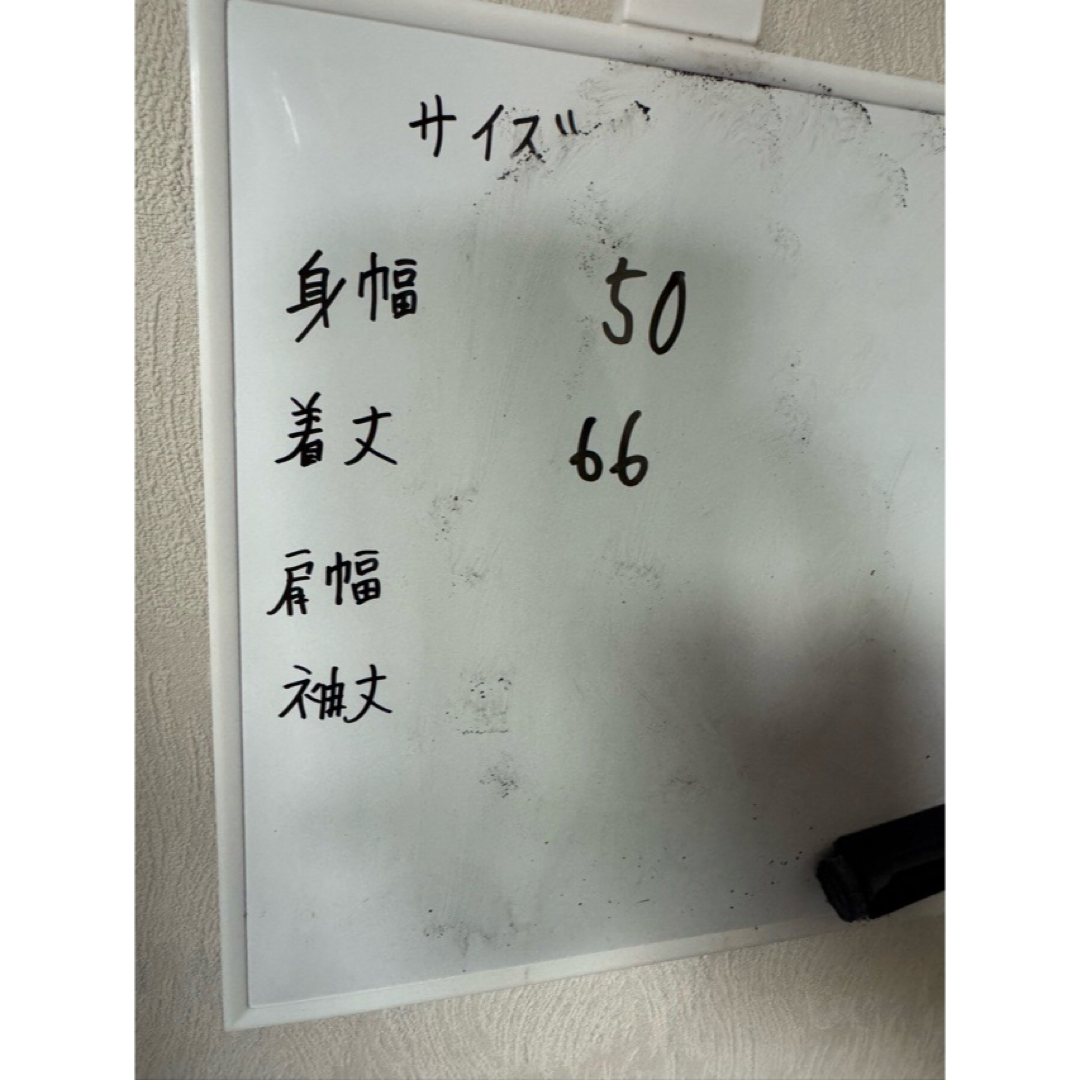 サイズ
身幅 50
着丈 66
肩幅
袖丈